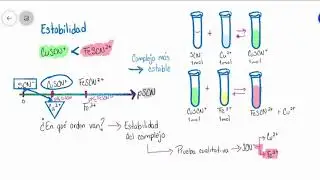 Estabilidad
CuSCN⁺ < FeSCN²⁺
Complejo más
estable
SCN⁻ Cu²⁺ CuSCN⁺
1mol 1mol
CuSCN⁺ Fe³⁺ FeSCN²⁺ + Cu²⁺
1mol 1mol
CuSCN⁺
0
pSCN
Cu²⁺
Fe³⁺
¿En qué orden van? → Estabilidad
del complejo
→ Prueba cualitativa → SCN⁻
Cu²⁺
Fe³⁺